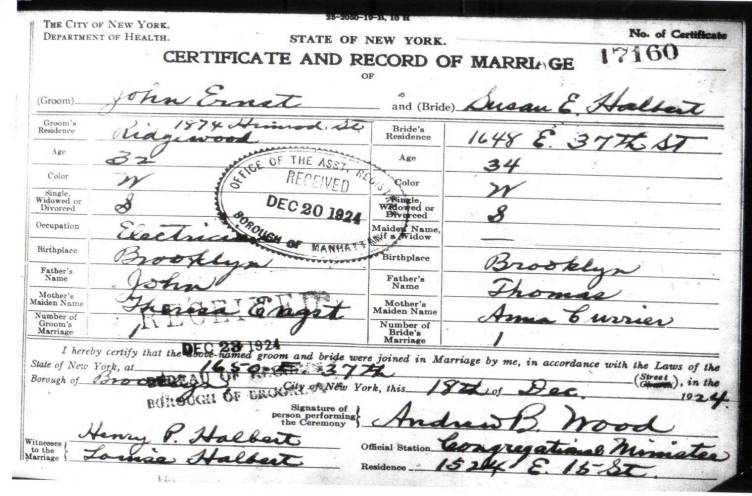 25-2050-19-B, 10 H
THE CITY OF NEW YORK.
DEPARTMENT OF HEALTH.
STATE OF NEW YORK.
No. of Certificate
17160
CERTIFICATE AND RECORD OF MARRIAGE
OF
(Groom) John Ernst and (Bride) Susan E. Halbert
Groom's Residence 1874 Himrod St Ridgewood Bride's Residence 1648 E. 37th St
Age 32 Age 34
Color W Color W
Single, Widowed or Divorced S Single, Widowed or Divorced S
Occupation Electrician Maiden Name, if a Widow —
Birthplace Brooklyn Birthplace Brooklyn
Father's Name John Father's Name Thomas
Mother's Maiden Name Theresa Engst Mother's Maiden Name Anna Currier
Number of Groom's Marriage 1 Number of Bride's Marriage 1
OFFICE OF THE ASST. REGISTRAR
RECEIVED
DEC 20 1924
BOROUGH OF MANHATTAN
RECEIVED
DEC 23 1924
BUREAU OF
BOROUGH OF BROOKLYN
I hereby certify that the above-named groom and bride were joined in Marriage by me, in accordance with the Laws of the
State of New York, at 1650 E. 37th (Street), in the
Borough of City of New York, this 18th of Dec. 1924.
Signature of person performing the Ceremony Andrew B. Wood
Witnesses to the Marriage Henry P. Halbert
Louise Halbert
Official Station Congregational Minister
Residence 1524 E. 15 St.